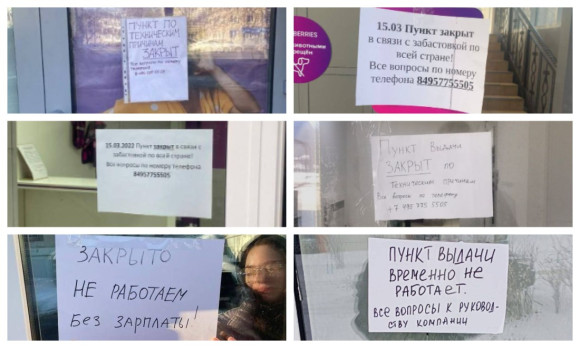 ПУНКТ ПО
ТЕХНИЧЕСКИМ
ПРИЧИНАМ
ЗАКРЫТ
Все вопросы по номеру
телефона
15.03 Пункт закрыт
в связи с забастовкой по
всей стране!
Все вопросы по номеру
телефона 84957755505
BERRIES
15.03.2023 Пункт закрыт в связи с
забастовкой по всей стране!
Все вопросы по номеру телефона
84957755505
Пункт Выдачи
ЗАКРЫТ по
техническим причинам
Все вопросы по телефону
+7 495 775 5505
ЗАКРЫТО
НЕ РАБОТАЕМ
Без ЗАРПЛАТЫ!
ПУНКТ ВЫДАЧИ
ВРЕМЕННО НЕ
РАБОТАЕТ.
ВСЕ ВОПРОСЫ К РУКОВОД-
СТВУ КОМПАНИИ